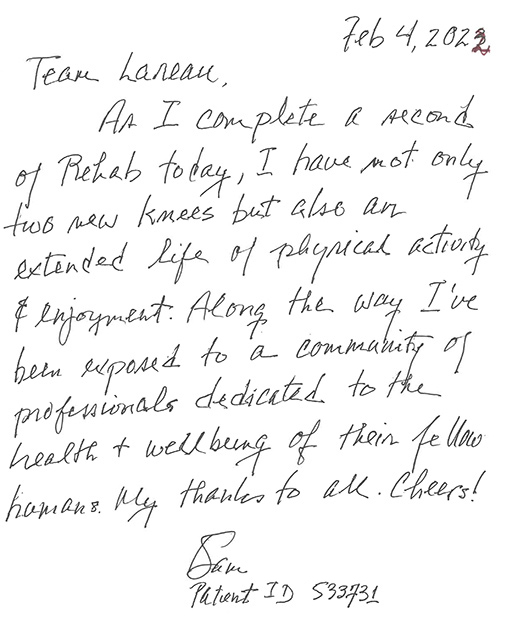 Feb 4, 2022
Team Lareau,
As I complete a second
of Rehab today, I have not only
two new knees but also an
extended life of physical activity
& enjoyment. Along the way I've
been exposed to a community of
professionals dedicated to the
health + wellbeing of their fellow
humans. My thanks to all. Cheers!
Sam
Patient ID S33731